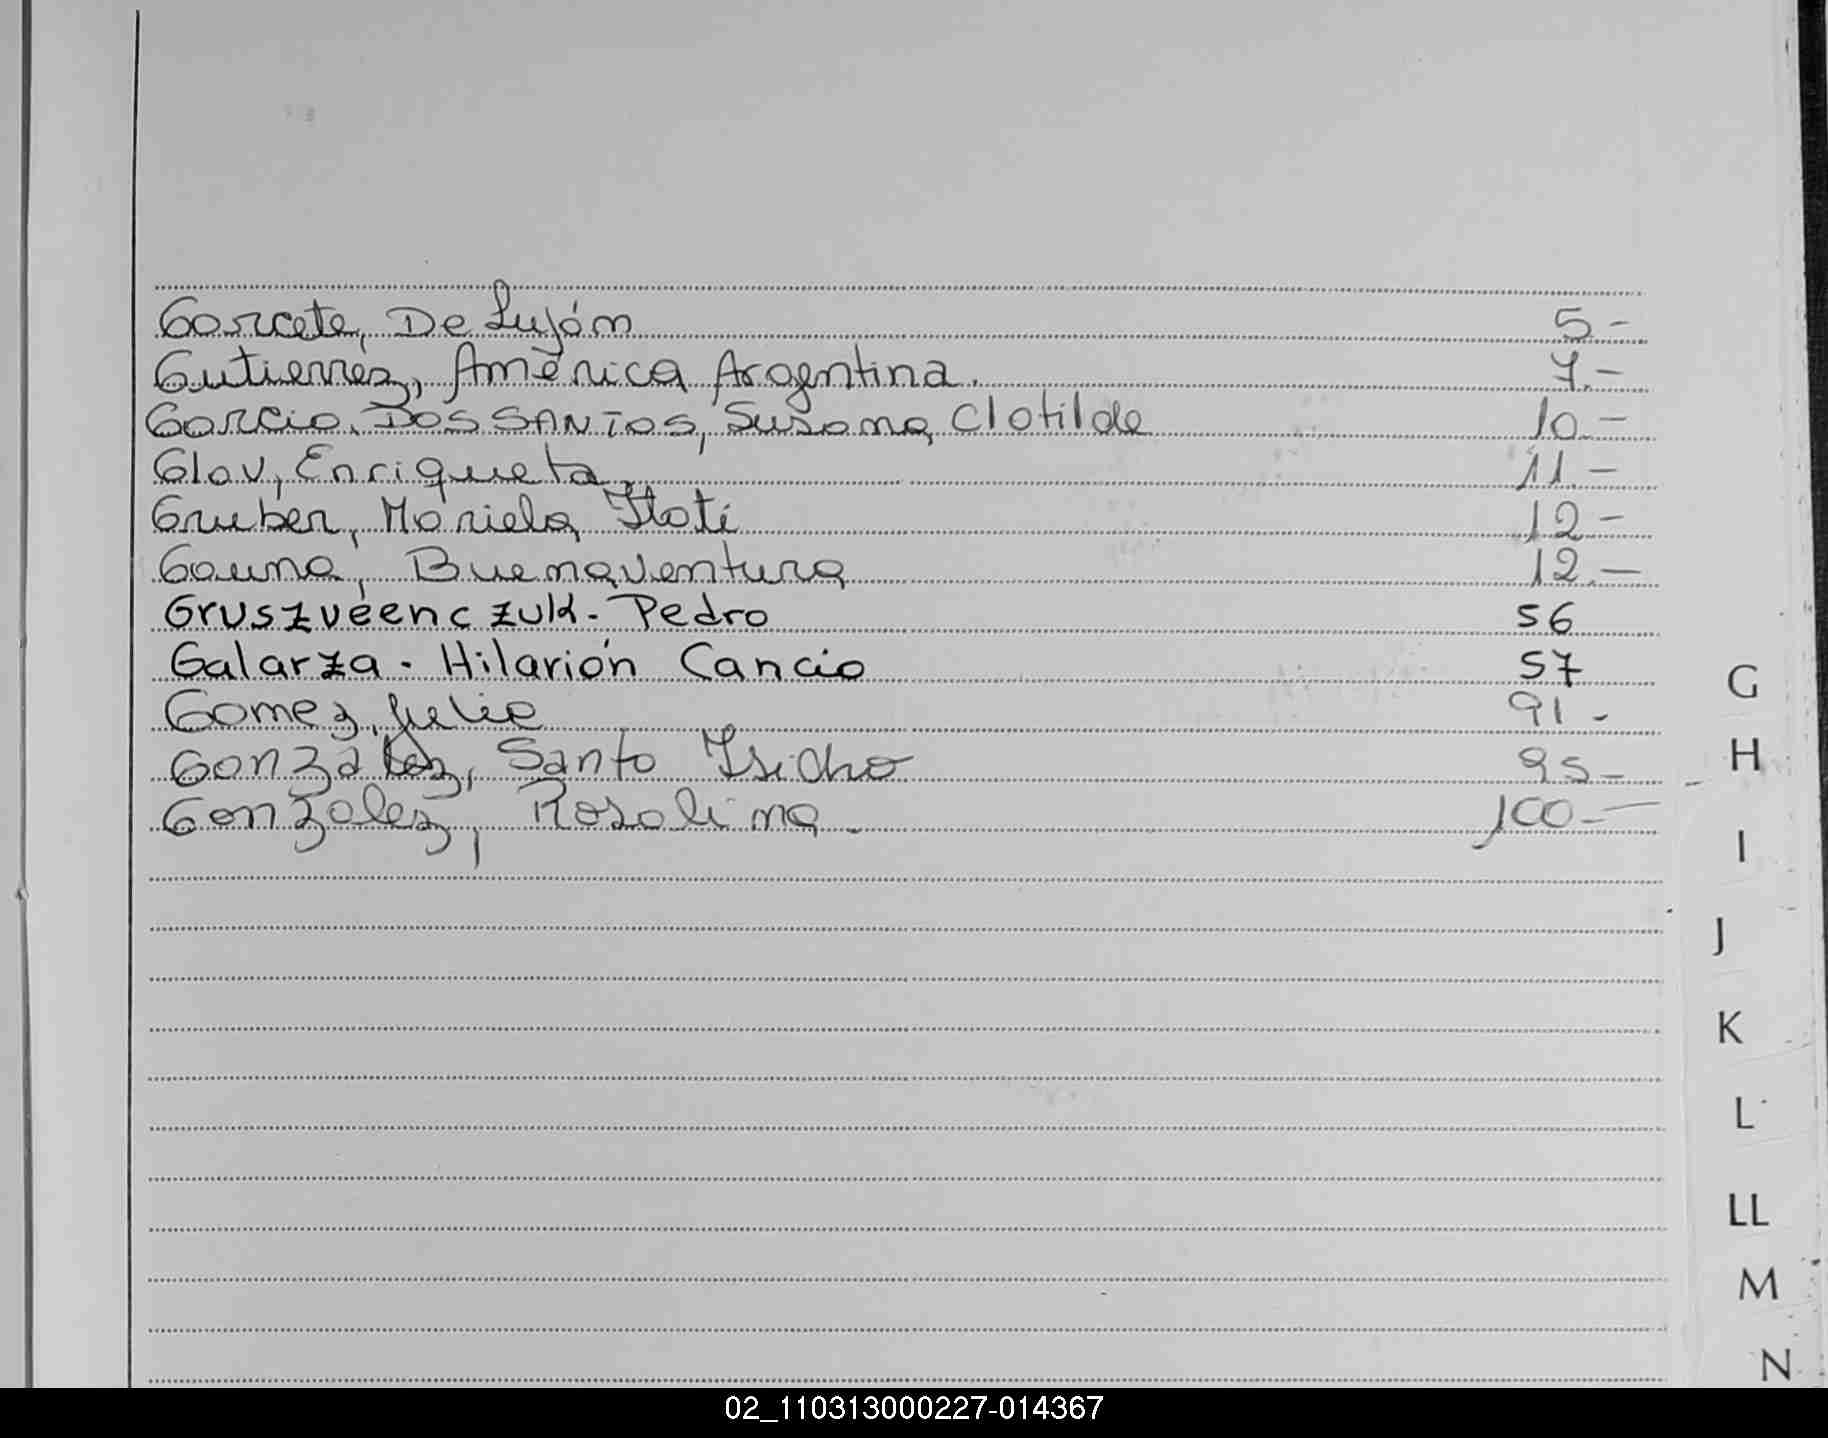 Garcete, De Luján 5.-
Gutierrez, América Argentina. 7.-
Garcia Dos SANTOS, Susana Clotilde 10.-
Glav, Enriqueta 11.-
Gruber, Mariela Itatí 12-
Gauna, Buenaventura 12.-
Gruszvéenczuk- Pedro 56
Galarza- Hilarión Cancio 57
G
Gomez, Julio 91-
H
Gonzalez, Santo Isidro 95-
Gonzalez, Rosalima. 100.-
I
J
K
L
LL
M
N
02_110313000227-014367